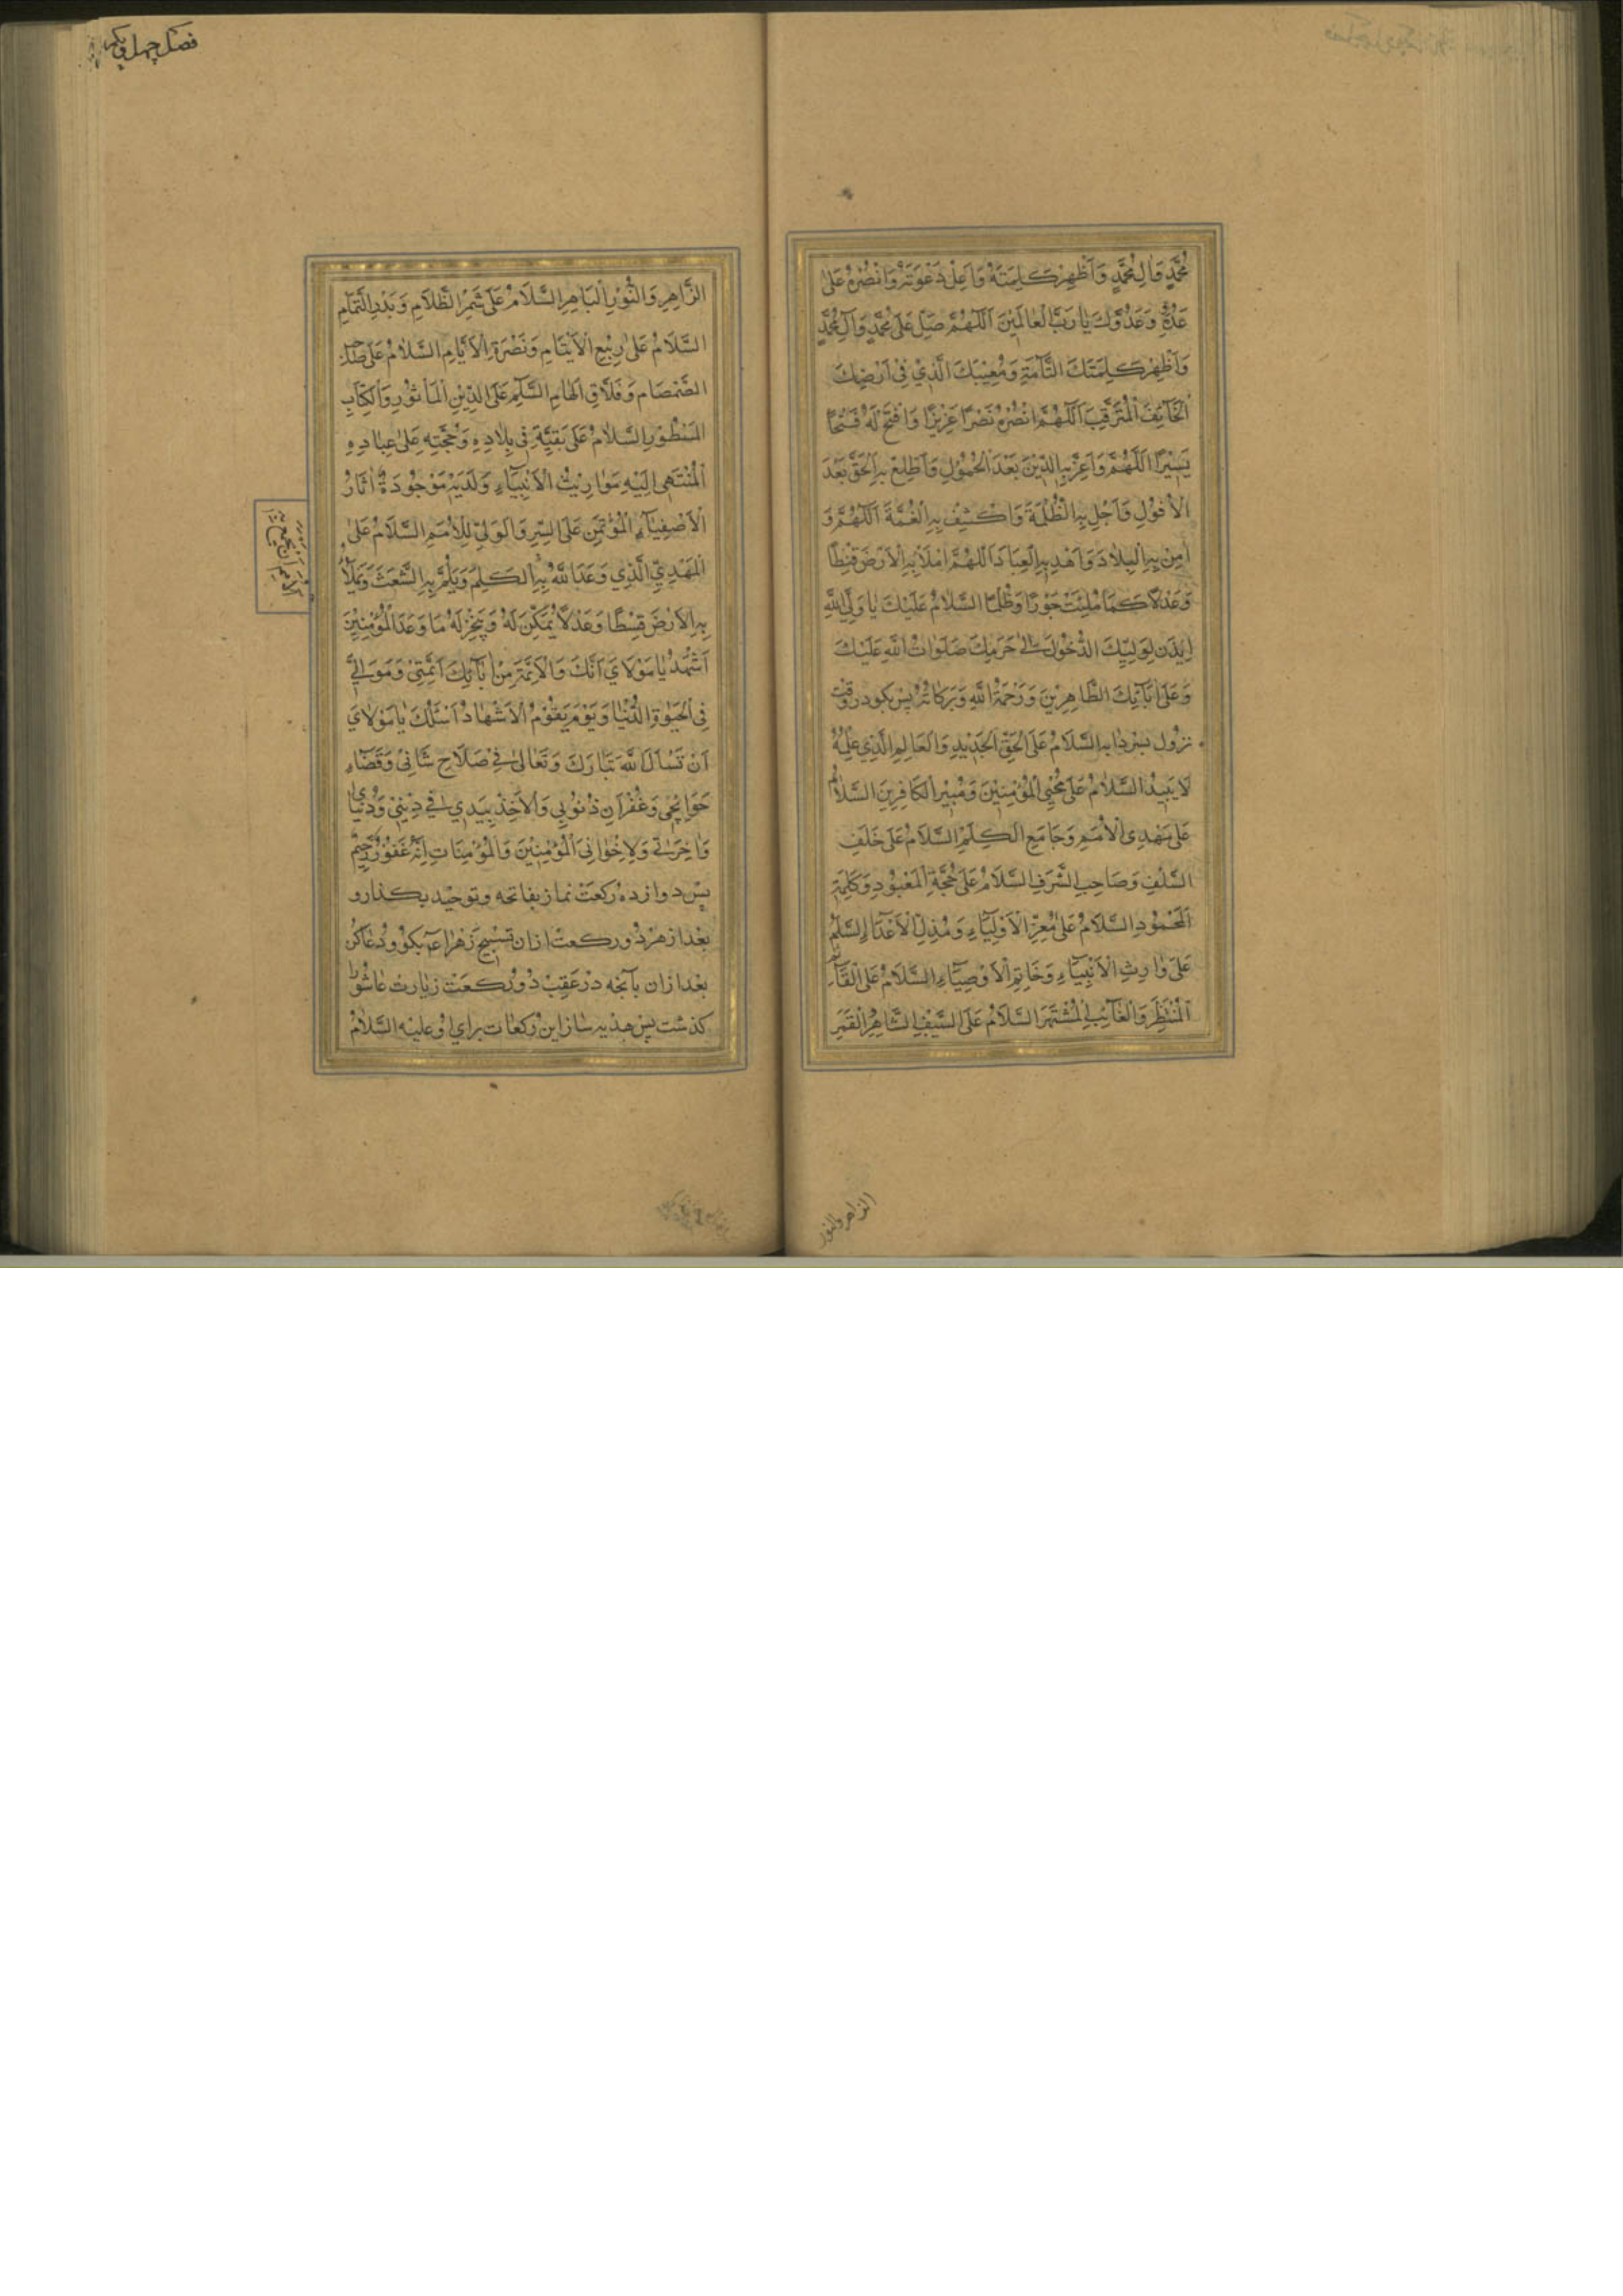 مُحَمَّدٍ وَاٰلِ مُحَمَّدٍ وَاَظْهِرْ كَلِمَتَهُ وَاَعْلِ دَعْوَتَهُ وَانْصُرْهُ عَلىٰ
عَدُوِّهِ وَعَدُوِّكَ يٰا رَبَّ الْعٰالَمِيْنَ اَللّٰهُمَّ صَلِّ عَلىٰ مُحَمَّدٍ وَاٰلِ مُحَمَّدٍ
وَاَظْهِرْ كَلِمَتَكَ التَّآمَّةَ وَمُغَيَّبَكَ الَّذِيْ فِيْ اَرْضِكَ
الْخَآئِفَ الْمُتَرَقِّبَ اَللّٰهُمَّ انْصُرْهُ نَصْرًا عَزِيْزًا وَافْتَحْ لَهُ فَتْحًا
يَسِيْرًا اَللّٰهُمَّ وَاَعِزَّ بِهِ الدِّيْنَ بَعْدَ الْخُمُوْلِ وَاَطْلِعْ بِهِ الْحَقَّ بَعْدَ
الْاُفُوْلِ وَاَجْلِ بِهِ الظُّلْمَةَ وَاكْشِفْ بِهِ الْغُمَّةَ اَللّٰهُمَّ وَ
اٰمِنْ بِهِ الْبِلٰادَ وَاهْدِ بِهِ الْعِبَادَ اَللّٰهُمَّ امْلَأْ بِهِ الْاَرْضَ قِسْطًا
وَعَدْلًا كَمَا مُلِئَتْ جَوْرًا وَظُلْمًا السَّلٰامُ عَلَيْكَ يٰا وَلِيَّ اللّٰهِ
اِيْذَنْ لِوَلِيِّكَ الدُّخُوْلَ اِلىٰ حَرَمِكَ صَلَوٰاتُ اللّٰهِ عَلَيْكَ
وَعَلىٰ اٰبَآئِكَ الطَّاهِرِيْنَ وَرَحْمَةُ اللّٰهِ وَبَرَكٰاتُهُ پس بكو در وقت
نزول بسرداب السَّلَامُ عَلَى الْحَقِّ الْجَدِيْدِ وَالْعَالِمِ الَّذِي عِلْمُهُ
لَا يَبِيْدُ السَّلٰامُ عَلىٰ مُحْيِي الْمُؤْمِنِيْنَ وَمُبِيْرِ الْكَافِرِيْنَ السَّلَامُ
عَلىٰ مَهْدِيِّ الْاُمَمِ وَجَامِعِ الْكَلِمِ السَّلَامُ عَلىٰ خَلَفِ
السَّلَفِ وَصَاحِبِ الشَّرَفِ السَّلَامُ عَلىٰ حُجَّةِ الْمَعْبُوْدِ وَكَلِمَةِ
الْمَحْمُوْدِ السَّلَامُ عَلىٰ مُعِزِّ الْاَوْلِيَآءِ وَمُذِلِّ الْاَعْدَآءِ السَّلَامُ
عَلىٰ وٰارِثِ الْاَنْبِيَآءِ وَخَاتِمِ الْاَوْصِيَآءِ السَّلَامُ عَلَى الْقَآئِمِ
الْمُنْتَظَرِ وَالْغَآئِبِ الْمُشْتَهَرِ السَّلَامُ عَلَى السَّيْفِ الشَّاهِرِ الْقَمَرِ
الزاهر والنور
فصل چهل ويكم
الزَّاهِرِ وَالنُّوْرِ الْبَاهِرِ السَّلَامُ عَلىٰ شَمْسِ الظَّلَامِ وَبَدْرِ التَّمَامِ
السَّلَامُ عَلىٰ رَبِيْعِ الْاَيْتَامِ وَنَضْرَةِ الْاَيَّامِ السَّلَامُ عَلىٰ صَاحِبِ
الصَّمْصَامِ وَفَلَّاقِ الْهَامِ السَّلَامُ عَلَى الدِّيْنِ الْمَأْثُوْرِ وَالْكِتَابِ
الْمَسْطُوْرِ السَّلَامُ عَلىٰ بَقِيَّةِ فِيْ بِلَادِهِ وَحُجَّتِهِ عَلىٰ عِبَادِهِ
الْمُنْتَهِيْ اِلَيْهِ مَوَارِيْثُ الْاَنْبِيَآءِ وَلَدَيْهِ مَوْجُوْدَةٌ اٰثَارُ
الْاَصْفِيَآءِ الْمُؤْتَمَنِ عَلَى السِّرِّ وَالْوَلِيِّ لِلْاُمَمِ السَّلَامُ عَلَى
الْمَهْدِيِّ الَّذِي وَعَدَ اللّٰهُ بِهِ الْكَلِمَ وَيَلُمَّ بِهِ الشَّعَثَ وَيَمْلَأَ
بِهِ الْاَرْضَ قِسْطًا وَعَدْلًا يُمَكِّنَ لَهُ وَيُنْجِزَ لَهُ مَا وَعَدَ الْمُؤْمِنِيْنَ
اَشْهَدُ يٰا مَوْلَايَ اَنَّكَ وَالْاَئِمَّةَ مِنْ اٰبَآئِكَ اَئِمَّتِيْ وَمَوَالِيَّ
فِي الْحَيٰوةِ الدُّنْيَا وَيَوْمَ يَقُوْمُ الْاَشْهَادُ اَسْئَلُكَ يٰا مَوْلَايَ
اَنْ تَسْاَلَ اللّٰهَ تَبَارَكَ وَتَعَالىٰ فِيْ صَلَاحِ شَانِيْ وَقَضَآءِ
حَوَائِجِيْ وَغُفْرَانِ ذُنُوْبِيْ وَالْاَخْذِ بِيَدِي فِيْ دِيْنِيْ وَدُنْيَايَ
وَاٰخِرَتِيْ وَلِاِخْوَانِيَ الْمُؤْمِنِيْنَ وَالْمُؤْمِنَاتِ اِنَّهُ غَفُوْرٌ رَحِيْمٌ
پس دوازده ركعت نماز بفاتحه وتوحيد بكذار و
بعد از هر دو ركعت ازان تسبيح زهرا ع بكو ودعا كن
بعد ازان بآنچه در عقب دو ركعت زيارت عاشورا
كذشت پس هديه ساز اين ركعات براي او عليه السلام